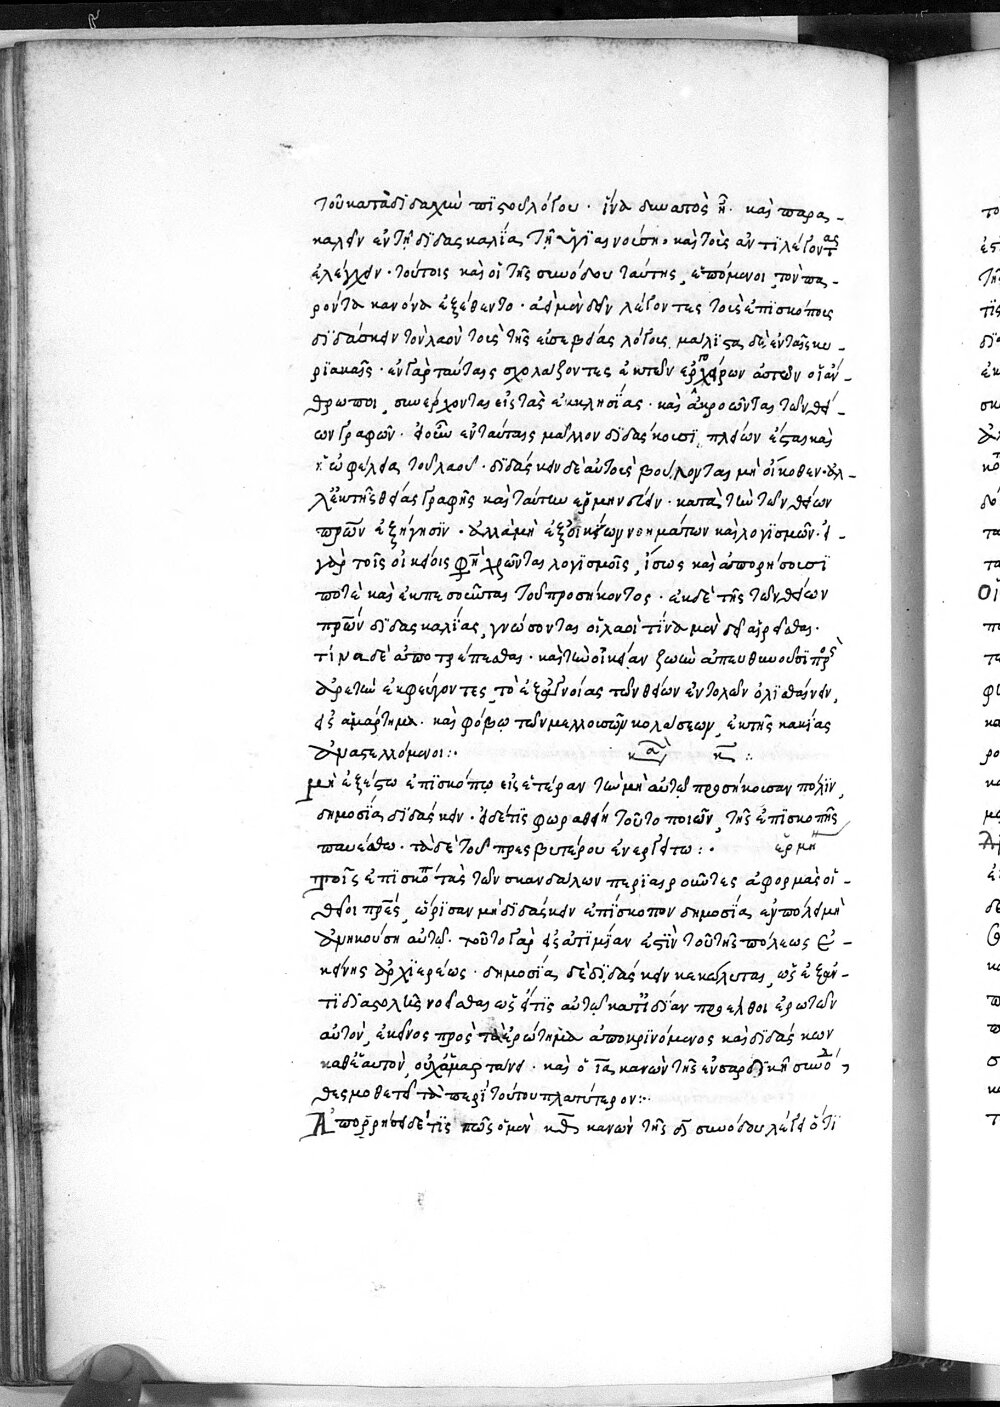 τοῦ κατὰ διδαχὴν πιστοῦ λόγου · ἵνα δυνατὸς ᾖ · καὶ παρα-
καλεῖν ἐν τῇ διδασκαλίᾳ τῇ ὑγιαινούσῃ · καὶ τοὺς ἀντιλέγοντας
ἐλέγχειν · τούτοις καὶ οἱ τῆς συνόδου ταύτης, ἑπόμενοι τὸν πα-
ρόντα κανόνα ἐξέθεντο · ἀεὶ μὲν δεῖν λέγοντες τοὺς ἐπισκόπους
διδάσκειν τὸν λαὸν τοὺς τῆς εὐσεβείας λόγους, μάλιστα δὲ ἐν ταῖς κυ-
ριακαῖς · ἐν γὰρ ταύταις σχολάζοντες ἐκ τῶν ἐργοχείρων ἅπαντες οἱ ἄν-
θρωποι, συνέρχονται εἰς τὰς ἐκκλησίας · καὶ ἀκροῶνται τῶν θεί-
ων γραφῶν · εἰ οὖν ἐν ταύταις μᾶλλον διδάσκουσι, πλείων ἔσται καὶ
ἡ ὠφέλεια τοῦ λαοῦ · διδάσκειν δὲ αὐτοὺς βούλονται μὴ οἴκοθεν · ἀλ-
λ' ἐκ τῆς θείας γραφῆς καὶ ταύτην ἑρμηνεύειν · κατὰ τὴν τῶν θείων
πρων ἐξήγησιν · ἀλλὰ μὴ ἐξ οἰκείων νοημάτων καὶ λογισμῶν · εἰ
γὰρ τοῖς οἰκείοις χρῶνται λογισμοῖς, ἴσως καὶ ἀπορήσουσί
ποτε καὶ ἐκπεσοῦνται τοῦ προσήκοντος · ἐκ δὲ τῆς τῶν θείων
πρων διδασκαλίας, γνώσονται οἱ λαοὶ τίνα μὲν δεῖ αἱρεῖσθαι ·
τίνα δὲ ἀποτρέπεσθαι · καὶ τὴν οἰκείαν ζωὴν ἀπευθυνοῦσι πρὸς
ἀρετὴν ἐκφεύγοντες, τὸ ἐξ ἀγνοίας τῶν θείων ἐντολῶν ὀλισθαίνειν,
εἰς ἁμάρτημα · καὶ φόβῳ τῶν μελλουσῶν κολάσεων, ἐκ τῆς κακίας
ἀναστελλόμενοι :· κα κ :
μὴ ἐξέστω ἐπισκόπῳ εἰς ἑτέραν τὴν μὴ αὐτῷ προσήκουσαν πόλιν,
δημοσίᾳ διδάσκειν · εἰ δέ τις φωραθείη τοῦτο ποιῶν, τῆς ἐπισκοπῆς
παυέσθω · τὰ δὲ τοῦ πρεσβυτέρου ἐνεργείτω : · ἑρμη
τοῖς ἐπισκόποις τὰς τῶν σκανδάλων περιαιροῦντες ἀφορμὰς οἱ
θεῖοι πρες, ὥρισαν μὴ διδάσκειν ἐπίσκοπον δημοσίᾳ ἐν πόλει μὴ
ἀνηκούσῃ αὐτῷ · τοῦτο γὰρ εἰς ἀτιμίαν ἐστὶν τοῦ τῆς πόλεως ἐ-
κείνης ἀρχιερέως · δημοσίᾳ δὲ διδάσκειν κεκώλυται, ὡς ἐξεῖναι
τι διασολὴν νοεῖσθαι ὡς εἴ τις αὐτῷ κατ' ἰδίαν προσέλθοι ἐρωτῶν
αὐτὸν, ἐκεῖνος πρὸς τὰ ἐρώτημα ἀποκρινόμενος καὶ διδάσκων
καθ' ἑαυτὸν, οὐχ ἁμαρτάνει · καὶ ὁ ια κανὼν τῆς ἐν σαρδικῇ συνόδ,
θεσμοθετεῖ τὰ περὶ τούτου πλατύτερον :·
Ἀπορήσει δέ τις πῶς ὁ μὲν κθ κανὼν τῆς δ συνόδου λέγει ὅτι